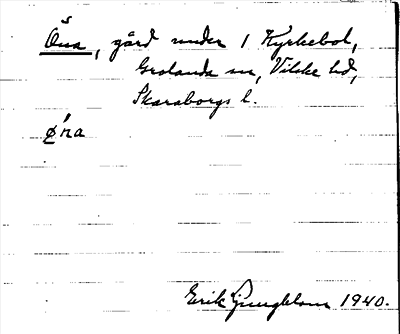 Öna, gård under 1 Kyrkebol,
Grolanda sn, Vilske hd,
Skaraborgs l.
øna
Erik Ljungblom 1940.